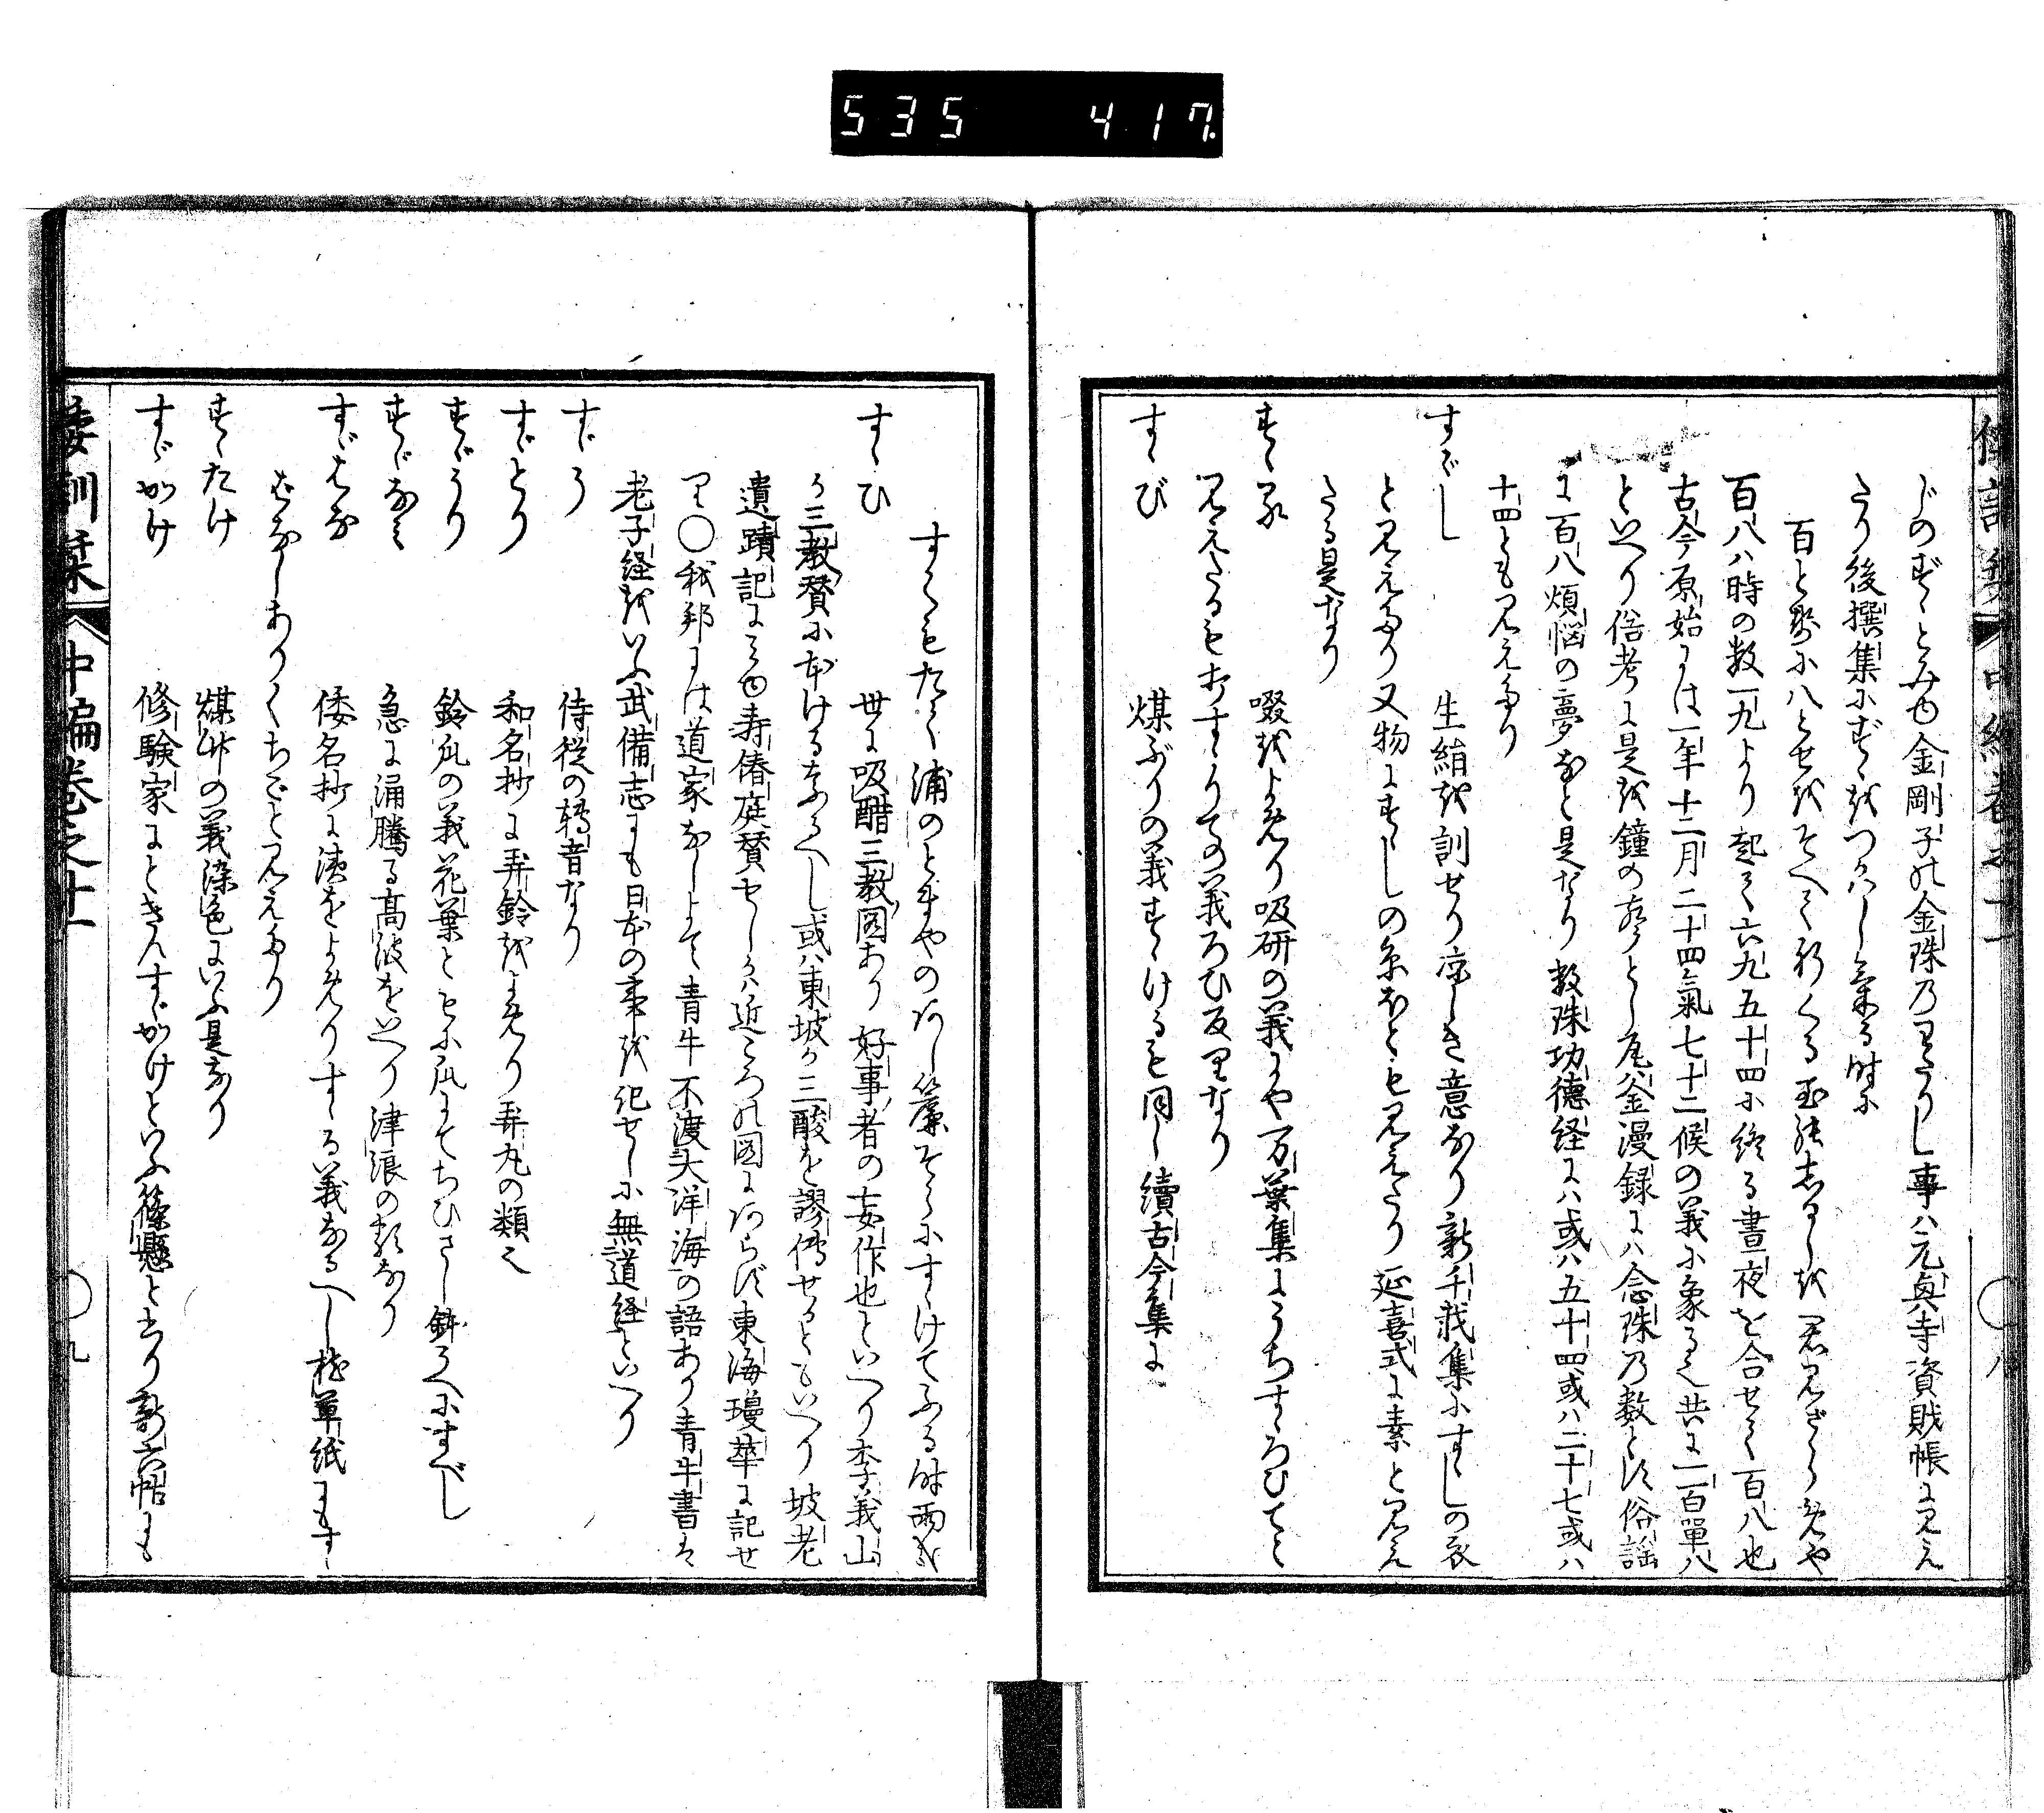 535 417
じのずゞとみゆ金剛子の金珠乃わたりし事ハ元興寺資財帳に見え
たり後撰集にずゞをつかハし来る時に
百と聚に八とせをそへて祈くる玉のしるしを君見ざらめや
百八ハ時の数一九より起て六九五十四に終る晝夜を合せて百八也
古今原始には一年十二月二十四氣七十二候の義に象る也共に一百單八
といへり俗考に是を鐘の声とし尾釜漫録にハ念珠乃数とす俗謡
に百八煩悩の夢など是なり数珠功徳経にハ或ハ五十四或ハ二十七或ハ
十四とも見えたり
すゞし 生絹を訓せり凉しき意なり新千載集にすゞしの衣
と見えたり又物にすゞしの糸などとも見えたり延喜式に素と見え
たる是なり
すゝる 啜をよめり吸研の義にや万葉集にうちすゝろひてと
見えたるもすゝりての義ろひ反りなり
すゝび 煤ぶりの義すゝけるも同し續古今集に
すくもたく浦のとまやのあし簾そらにすゝけてふる時雨哉
すゝひ 世に吸醋三教図あり好事者の妄作也といへり李義山
か三教賛に本けるなるへし或ハ東坡か三酸を謬傳せるともいへり坡老
遺蹟記にみゆ寿椿庭賛せしハ近ころの図にあらず東海瓊華に記せ
り〇我邦には道家なしよて青牛不渡大洋海の語あり青牛書は
老子経をいふ武備志にも日本の事を記せしに無道経といへり
すゞう 侍従の轉音なり
すゞとり 和名抄に弄鈴をよめり弄丸の類也
すゞうり 鈴瓜の義花葉ともに瓜にてちひさし鉢うへにすべし
すゞなミ 急に涌騰る高波をいへり津浪の類なり
すゞはな 倭名抄に洟をよめりすゝる義なるへし枕草紙にもすゝ
はなしありくちごと見えたり
すゝたけ 煤竹の義染色にいふ是なり
すゞかけ 修験家にときんすゞかけといふ篠懸と書り新六帖にも
倭訓栞 中編巻之十一 〇九